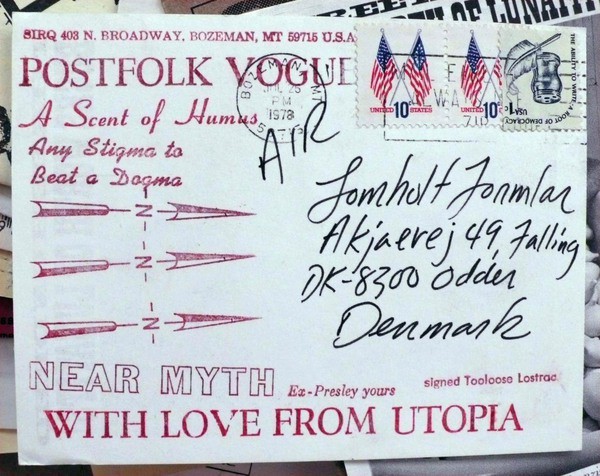 SIRQ 403 N. BROADWAY, BOZEMAN, MT 59715 U.S.A
POSTFOLK VOGUE
A Scent of Humus
Any Stigma to
Beat a Dogma
BOZEMAN, MT
JUL 25
PM
1978
UNITED 10¢ STATES
UNITED 10¢
THE ABILITY TO WRITE. A ROOT OF DEMOCRACY
USA 1¢
AIR
Lomholt Formular
Akjaerej 49, Falling
DK-8300 Odder
Denmark
N
N
N
NEAR MYTH
Ex-Presley yours
signed Tooloose Lostrac
WITH LOVE FROM UTOPIA
OF LUNA